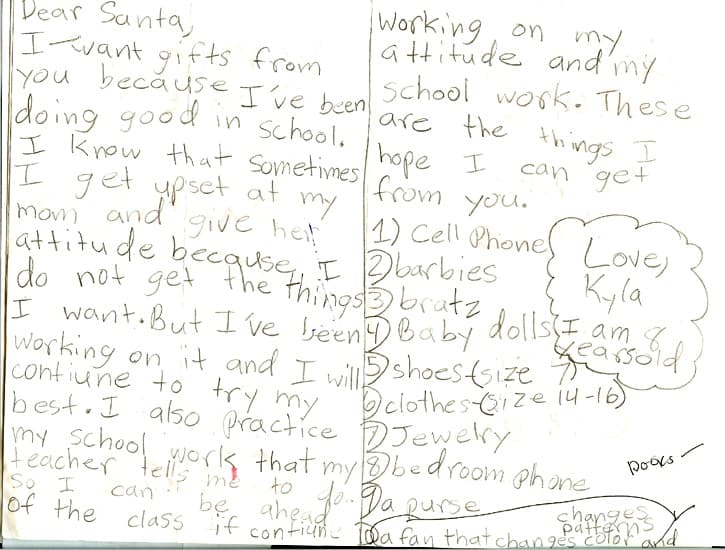 Dear Santa,
I want gifts from
you because I've been
doing good in school.
I know that sometimes
I get upset at my
mom and give her
attitude because I
do not get the things
I want. But I've been
working on it and I will
contiune to try my
best. I also practice
my school work that my
teacher tells me to do..
So I can be ahead
of the class if contiune
working on my
attitude and my
school work. These
are the things I
hope I can get
from you.
1) Cell Phone
2) barbies
3) bratz
4) Baby dolls
5) shoes-(size 7)
6) clothes-(size 14-16)
7) Jewelry
8) bedroom phone
9) a purse
10) a fan that changes color and
changes
patterns
books
Love,
Kyla
I am 8
yearsold